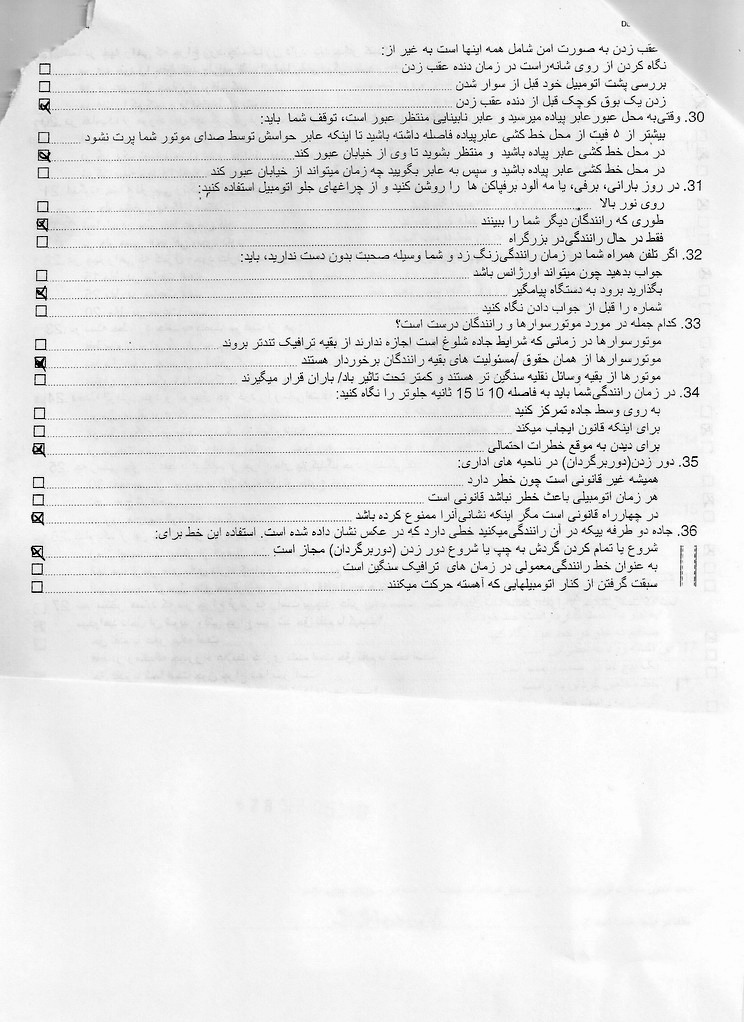 عقب زدن به صورت امن شامل همه اینها است به غیر از:
نگاه کردن از روی شانه راست در زمان دنده عقب زدن
بررسی پشت اتومبیل خود قبل از سوار شدن
زدن یک بوق کوچک قبل از دنده عقب زدن
30. وقتی‌به محل عبور عابر پیاده میرسید و عابر نابینایی منتظر عبور است، توقف شما باید:
بیشتر از ۵ فیت از محل خط کشی عابرپیاده فاصله داشته باشید تا اینکه عابر حواسش توسط صدای موتور شما پرت نشود
در محل خط کشی عابر پیاده باشید و منتظر بشوید تا وی از خیابان عبور کند
در محل خط کشی عابر پیاده باشید و سپس به عابر بگویید چه زمان میتواند از خیابان عبور کند
31. در روز بارانی، برفی، یا مه الود برفپاکن ها را روشن کنید و از چراغهای جلو اتومبیل استفاده کنید:
روی نور بالا
طوری که رانندگان دیگر شما را ببینند
فقط در حال رانندگی‌در بزرگراه
32. اگر تلفن همراه شما در زمان رانندگی‌زنگ زد و شما وسیله صحبت بدون دست ندارید، باید:
جواب بدهید چون میتواند اورژانس باشد
بگذارید برود به دستگاه پیامگیر
شماره را قبل از جواب دادن نگاه کنید
33. کدام جمله در مورد موتورسوارها و رانندگان درست است؟
موتورسوارها در زمانی که شرایط جاده شلوغ است اجازه ندارند از بقیه ترافیک تندتر بروند
موتورسوارها از همان حقوق /مسئولیت های بقیه رانندگان برخوردار هستند
موتورها از بقیه وسائل نقلیه سنگین تر هستند و کمتر تحت تاثیر باد/ باران قرار میگیرند
34. در زمان رانندگی‌شما باید به فاصله 10 تا 15 ثانیه جلوتر را نگاه کنید:
به روی وسط جاده تمرکز کنید
برای اینکه قانون ایجاب میکند
برای دیدن به موقع خطرات احتمالی
35. دور زدن(دوربرگردان) در ناحیه های اداری:
همیشه غیر قانونی است چون خطر دارد
هر زمان اتومبیلی باعث خطر نباشد قانونی است
در چهارراه قانونی است مگر اینکه نشانی‌آنرا ممنوع کرده باشد
36. جاده دو طرفه ییکه در آن رانندگی‌میکنید خطی دارد که در عکس نشان داده شده است. استفاده این خط برای:
شروع یا تمام کردن گردش به چپ یا شروع دور زدن (دوربرگردان) مجاز است
به عنوان خط رانندگی‌معمولی در زمان های ترافیک سنگین است
سبقت گرفتن از کنار اتومبیلهایی که آهسته حرکت میکنند